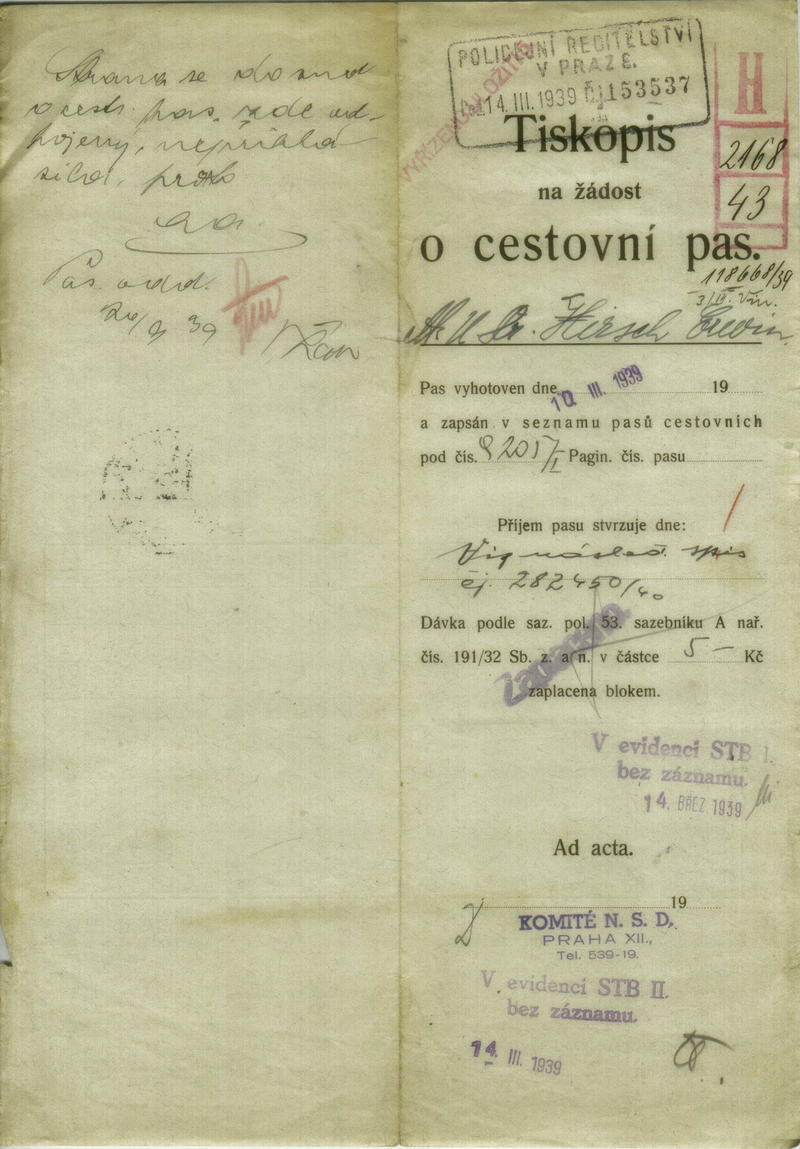 Strana se dosud
o cest. pas. zde
nepřihlá-
sila, proto
a a.
Pas. odd.
POLICEJNÍ ŘEDITELSTVÍ
V PRAZE.
14. III. 1939 Čj 153537
H
2168
43
Tiskopis
na žádost
o cestovní pas.
118668/39
Hirsch Ervin
Pas vyhotoven dne 10. III. 1939 19
a zapsán v seznamu pasů cestovních
pod čís. 8205/I Pagin. čís. pasu
Příjem pasu stvrzuje dne:
spis
čj. 282450/40
Dávka podle saz. pol. 53. sazebníku A nař.
čís. 191/32 Sb. z. a n. v částce 5 — Kč
zaplacena blokem.
V evidenci STB I.
bez záznamu.
14. BŘEZ 1939
Ad acta.
19
KOMITÉ N. S. D.
PRAHA XII.,
Tel. 539-19.
V evidenci STB II.
bez záznamu.
14. III. 1939